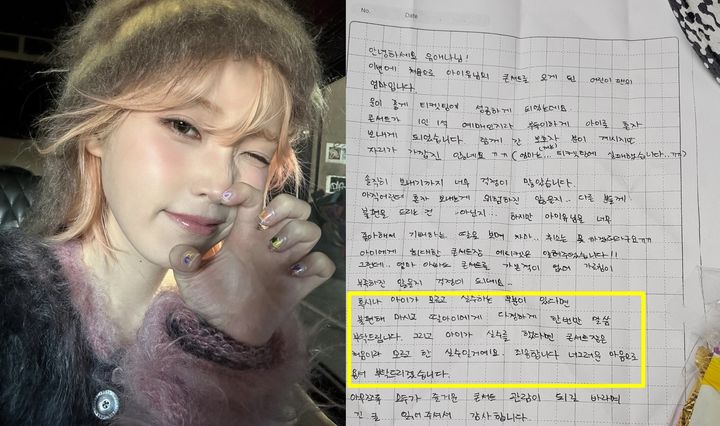 No.
Date
안녕하세요 유애나님!
이번에 처음으로 아이유님의 콘서트로 오게 된 어린이 팬의
엄마입니다.
운이 좋게 티켓팅에 성공하게 되었는데요
콘서트가 1인 1석 예매인지라 부득이하게 아이를 혼자
보내게 되었습니다. 함께 간 보호자 분이 계시지만
자리가 가깝진 않네요 ㅠㅠ (엄마는... 티켓팅에 실패했습니다..ㅠㅠ)
솔직히 보내기까지 너무 걱정이 많았습니다.
아직어린데 혼자 보내는게 위험하진 않을지.. 다른 분들께
불편을 드리는 건 아닌지.... 하지만 아이유님을 너무
좋아해서 기뻐하는 딸을 보며 차마.. 취소는 못 하겠더라구요ㅠㅠ
아이에게 최대한 콘서트장 에티켓은 알려주었습니다!!
그런데.. 엄마 아빠도 콘서트를 가본적이 없어 가르침이
부족하진 않을지 걱정이 되네요..
혹시나 아이가 모르고 실수하는 부분이 있다면
불편해 마시고 딸아이에게 다정하게 한번만 말씀
부탁드립니다. 그리고 아이가 실수를 했다면 콘서트장은
처음이라 모르고 한 실수일거에요. 죄송합니다 너그러운 마음으로
용서 부탁드리겠습니다.
아무쪼록 모두가 즐거운 콘서트 관람이 되길 바라며
긴 글 읽어주셔서 감사합니다.